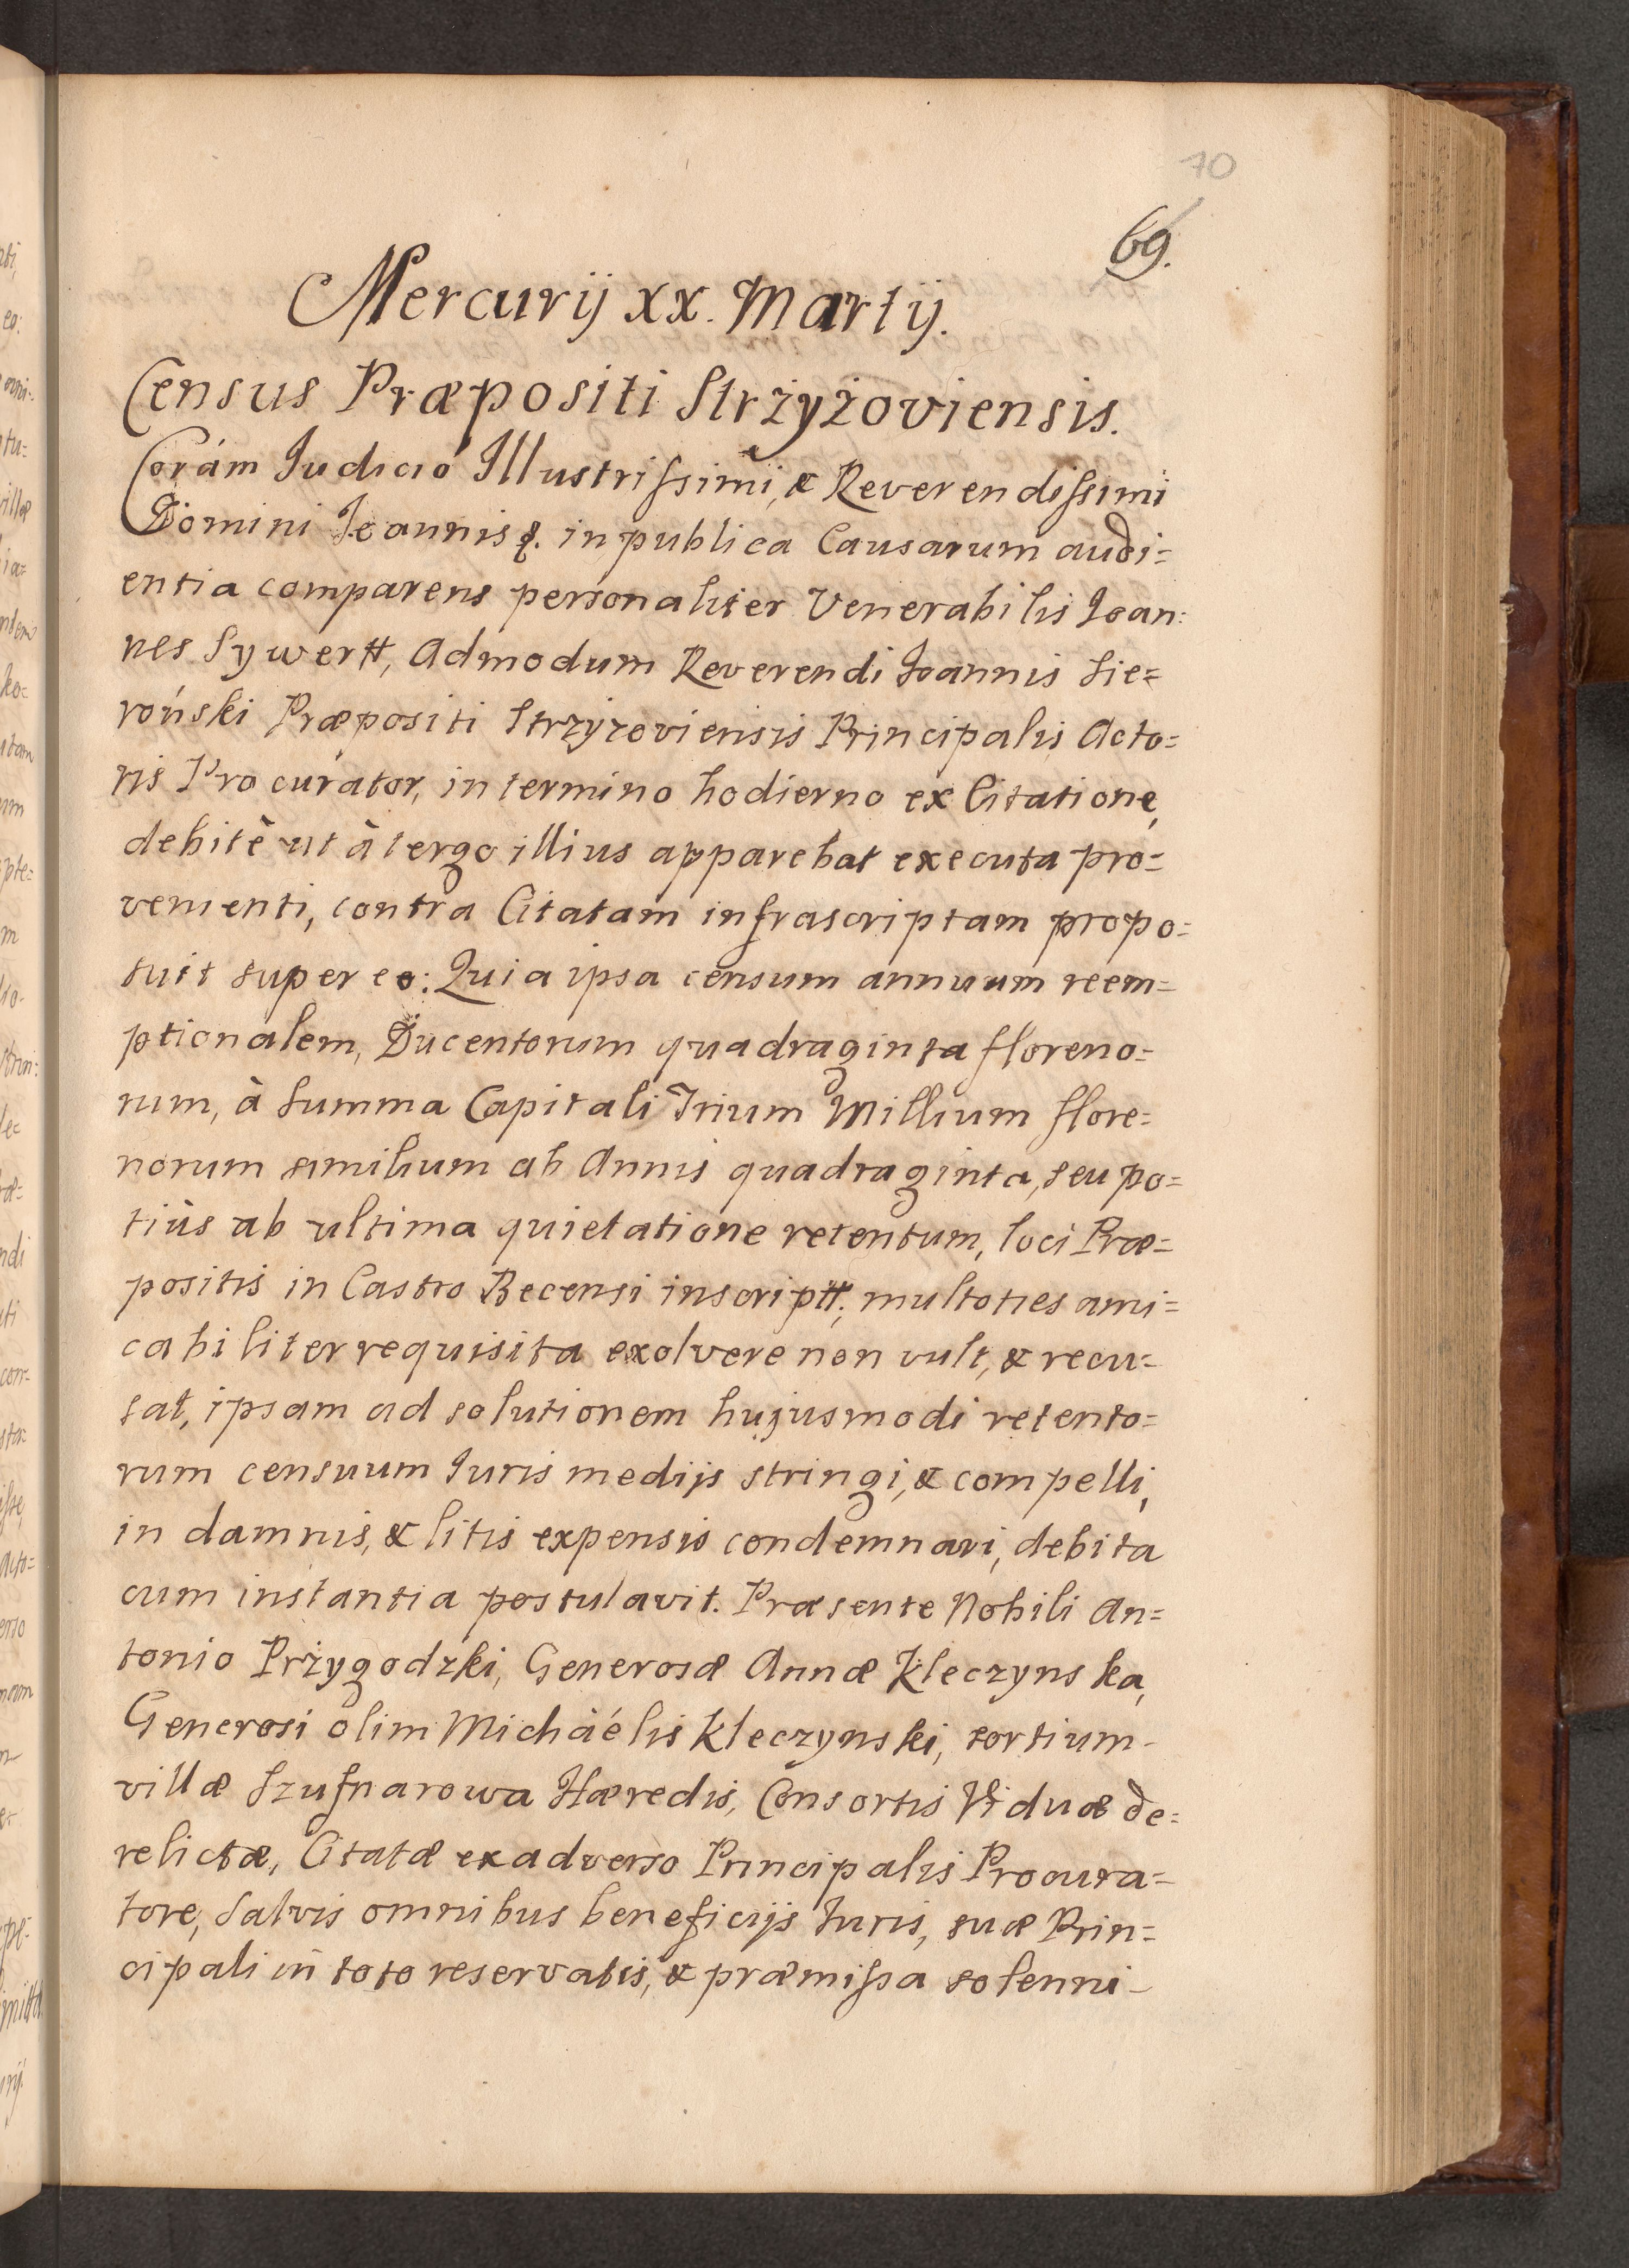 70
69.
Mercurij xx. Martij.
Census Præpositi Strżyżoviensis.
Corám Iudicio Illustrissimi, & Reverendissimi
Domini Ioannis &. in publica Causarum audi=
entia comparens personaliter Venerabilis Ioan:
nes Sywertt, Admodum Reverendi Ioannis Sie=
roński Præpositi Strzyżoviensis Principalis Acto=
ris Procurator, in termino hodierno ex Citatione,
debitè ut à tergo illius apparebat executa pro=
venienti, contra Citatam infrascriptam propo=
suit super eo: Quia ipsa censum annuum reem=
ptionalem, Ducentorum quadraginta floreno=
rum, à Summa Capitali Trium Millium flore=
norum similium ab Annis quadraginta, seu po=
tiùs ab ultima quietatione retentum, loci Præ=
positis in Castro Becensi inscriptt, multoties ami=
cabiliter requisita exolvere non vult, & recu=
sat, ipsam ad solutionem hujusmodi retento=
rum censuum Iuris medijs stringi, & compelli,
in damnis, & litis expensis condemnari, debita
cum instantia postulavit. Præsente Nobili An=
tonio Prżygodzki, Generosæ Annæ Kleczynska,
Generosi olim Micháélis Kleczynski, sortium
villæ Szufnarowa Hæredis, Consortis Viduæ de=
relictæ, Citatæ ex adverso Principalis Procura=
tore, Salvis omnibus beneficijs Iuris, suæ Prin=
cipali in toto reservatis, & præmissa solenni-